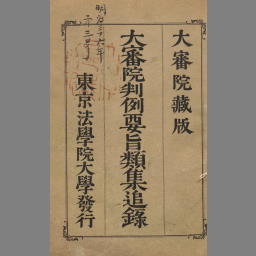 大審院藏版
大審院判例要旨類集追錄
東京法學院大學發行
明治三十六年